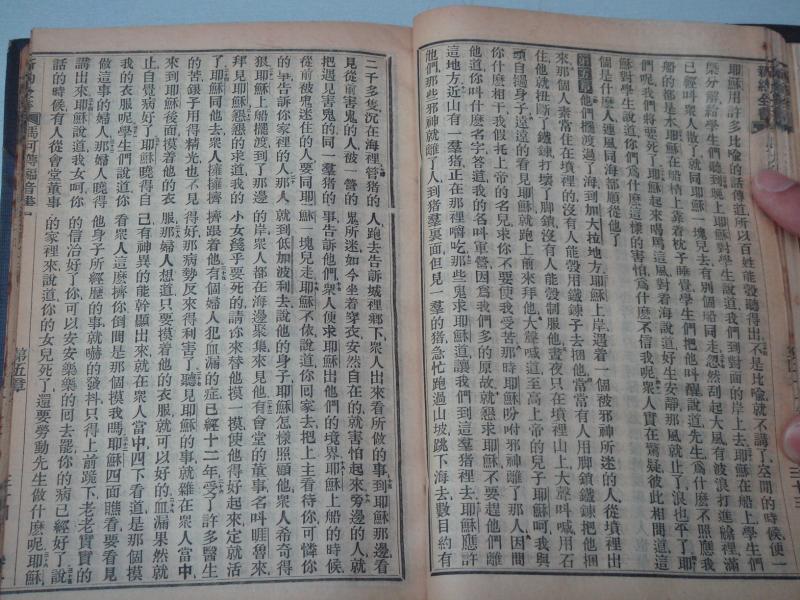 耶穌用許多比喻的話傳道所以百姓能彀聽得出不是比喻就不講了空閒的時候便一
槩分解給學生們聽到晚上耶穌對學生說我們到對面的岸上去耶穌在船上學生們
已經叫衆人散了就同耶穌一塊兒去有別個船同走忽然刮起大風有波浪打進船裡滿
船的都是水耶穌在船稍上靠着枕子睡覺學生們把他叫醒說道先生爲什麽不照應我
們呢我們將要死了耶穌起來喝罵這風對着海說道好生安靜那風就止了浪也平了耶
穌對學生說道你們爲什麽這樣的害怕爲什麽不信我呢衆人實在驚疑彼此相問道這
個是什麽人連風同海都順從他了
第五章 他們擺渡過了海到加大拉地方耶穌上岸遇着一個被邪神所迷的人從墳裡出
來那個人素常住在墳裡的沒有人能彀用鐵鍊子去捆他當常有人用脚鎖鐵鍊把他捆
住他就扭斷了鐵鍊打壞了脚鎖沒有人能彀制服他晝夜只在墳裡山上大聲叫喊用石
頭自搥身子遠遠的看見耶穌就跑上前來拜他大聲喊道至高上帝的兒子耶穌呵我與
你什麽相干我假托上帝的名兒求你不要使我受苦那時耶穌吩咐邪神離了那人因問
他道你叫什麽名字答道我的名叫軍營因爲我們多的原故就懇求耶穌不要趕他們離
這地方近山有一羣猪正在那裡嚼吃那些鬼求耶穌道讓我們到這羣猪裡去耶穌應許
他們那些邪神就離了人到猪羣裏面但見一羣的猪急忙跑過山坡跳下海去數目約有
二千多隻沉在海裡管猪的人跑去告訴城裡鄉下衆人出來看所做的事到耶穌那邊看
見從前害鬼的人被一營的鬼所迷如今坐着穿衣安然自在的就害怕起來旁邊的人就
把遇見害鬼的同一羣猪的事告訴他們衆人便求耶穌出他們的境界耶穌上船的時候
從前被鬼迷住的人要同耶穌一塊兒走耶穌不依說道你回家去把上主看待你可憐你
的事告訴你家裡的人那人就到低加波利去說他的身子耶穌怎樣照顧他衆人希奇得
狠耶穌上船擺渡到了那邊的岸衆人都在海邊聚集來見他有會堂的董事名叫睚魯來
拜見耶穌懇懇的求道我的小女幾乎要死的請你來替他摸一摸使他得好起來定就活
了耶穌同他去衆人擁擁擠擠跟着他有個婦人犯血漏的症已經十二年受了許多醫生
的苦銀子用得精光也不見得好那病勢反來得利害了聽見耶穌的事就雜在衆人當中
來到耶穌後面摸着他的衣服那婦人想道只要摸着他的衣服就可以好的血漏果然就
止自覺病好了耶穌曉得自己有神異的能幹顯出來就在衆人當中四下看道是那個摸
我的衣服呢學生們說道你看衆人這麽擠你倒問是那個摸我嗎耶穌四面瞧看要看見
做這事的婦人那婦人曉得他身子所經歷的事就嚇的發抖只得上前跪下老老實實的
講出來耶穌說道我女呵你的信治好了你可以安安樂樂的回去罷你的病已經好了說
話的時候有人從會堂董事的家裡來說道你的女兒死了還要勞動先生做什麽呢耶穌
新約全書 馬可傳福音書
第五章